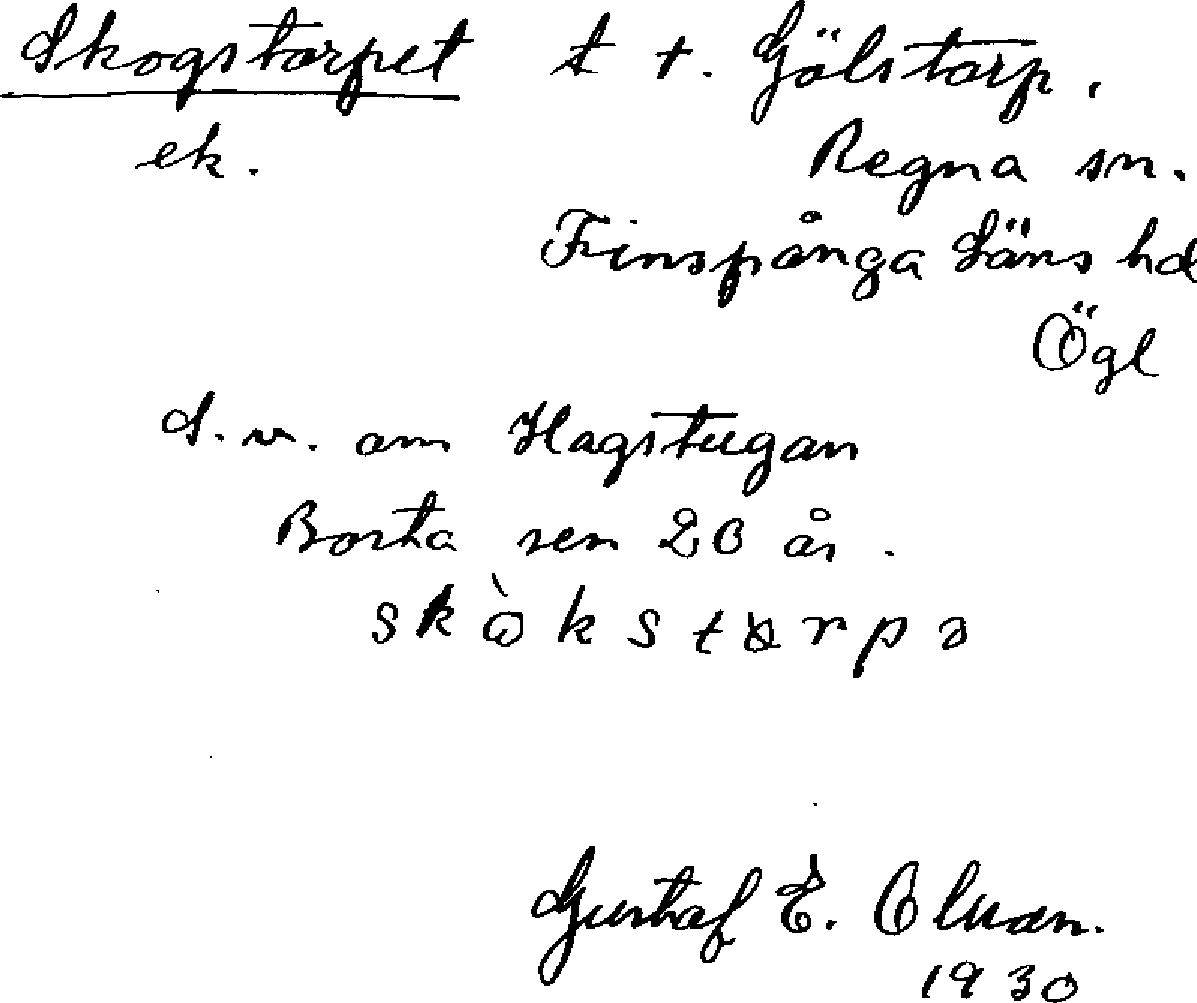 Skogstorpet t t. Gölstorp.
ek. Regna sn.
Finspånga Läns hd
Ögl
S. v. om Hagstugan
Borta sen 20 år.
skò̱kstɷrpə
Gustaf E. Olsson.
1930